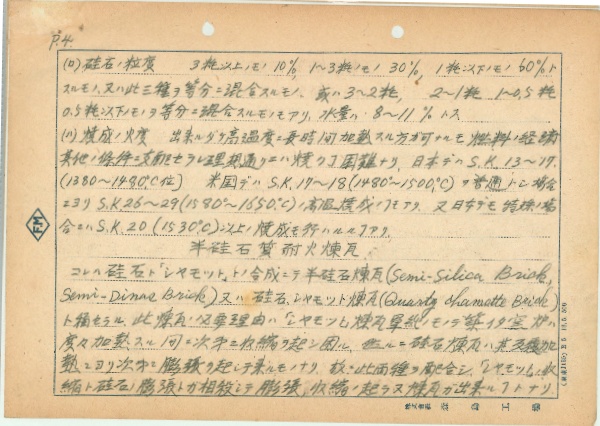 P.4.
(ロ) 硅石ノ粒度 3粍以上ノモノ 10%, 1〜3粍ノモノ 30%, 1粍以下ノモノ 60%ト
スルモノ、又ハ此三種ヲ等分ニ混合スルモノ、或ハ 3〜2粍, 2〜1粍 1〜0.5粍
0.5粍以下ノモノヲ等分ニ混合スルモノモアリ、水量ハ 8〜11%トス
(ハ) 焼成ノ火度 出来ルダケ高温度ニ長時間加熱スル方ガ可ナルモ 燃料ノ経済
其他ノ條件ニ支配セラレ理想通リニハ焼ク
困難ナリ、日本デハ S.K.13〜17.
(1380〜1480°C位) 米国デハ S.K.17〜18(1480°〜1500°C)ヲ普通トシ場合
ニヨリ S.K.26〜29(1580°〜1650°C)ノ高温焼成ノモアリ、又日本デモ 特殊ノ場
合ニハ S.K.20 (1530°C)以上ノ焼成モ行ハルルアリ.
半硅石質耐火煉瓦
コレハ硅石ト「シャモット」トノ合成ニテ半硅石煉瓦(Semi-Silica Brick,
Semi-Dinas Brick)又ハ 硅石、シャモット煉瓦(Quartz Chamotte Brick)
ト稱セラル、此煉瓦ノ必要理由ハ「シャモット」煉瓦単純ノモノデ築イタ窯炉ハ
度々加熱スル間ニ次第ニ収縮ヲ起シ困ル、
硅石煉瓦ハ其反対加
熱ニヨリ次第ニ膨張ヲ起シテ来ルモノナリ、故ニ此両種ヲ配合シ、「シャモット」ノ収
縮ト硅石ノ膨張トガ相殺シテ膨張、収縮ノ起ラヌ煉瓦ガ出来ルトナリ
FM
株式会社 品島工